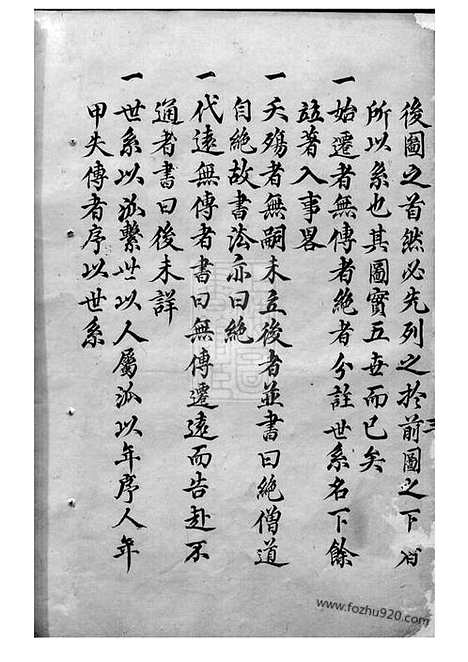 後圖之首然必先列之於前圖之下者
所以系也其圖實五世而已矣
一始遷者無傳者絕者分註世系名下餘
竝著入事畧
一夭殤者無嗣未立後者並書曰絕僧道
自絕故書法亦曰絕
一代遠無傳者書曰無傳遷遠而告赴不
通者書曰後未詳
一世系以派繫世以人屬派以年序人年
甲失傳者序以世系
www.fozhu920.com